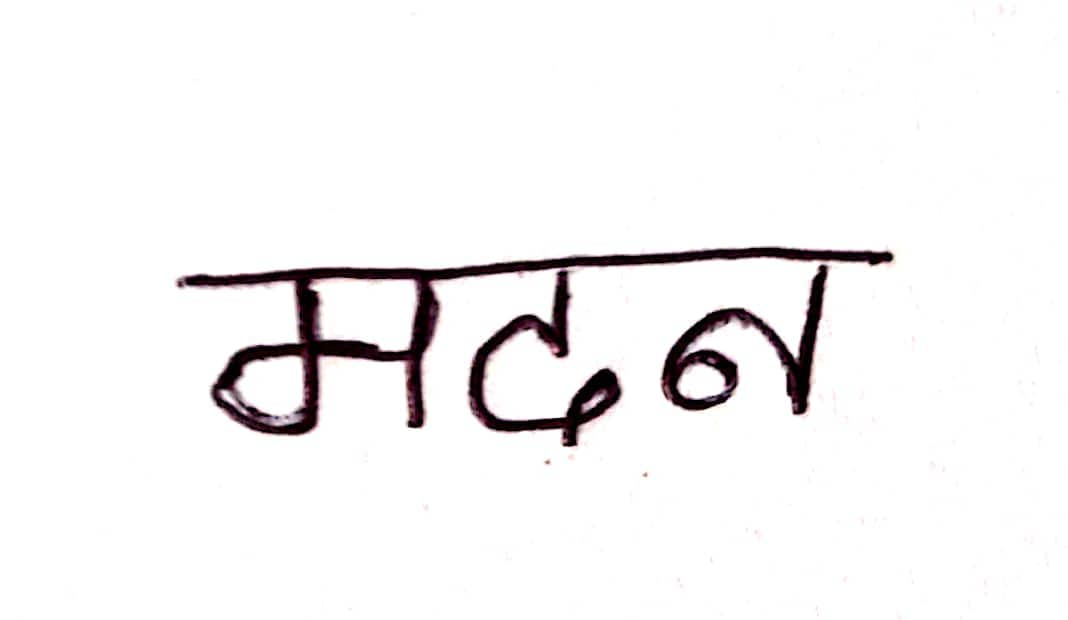 मदन